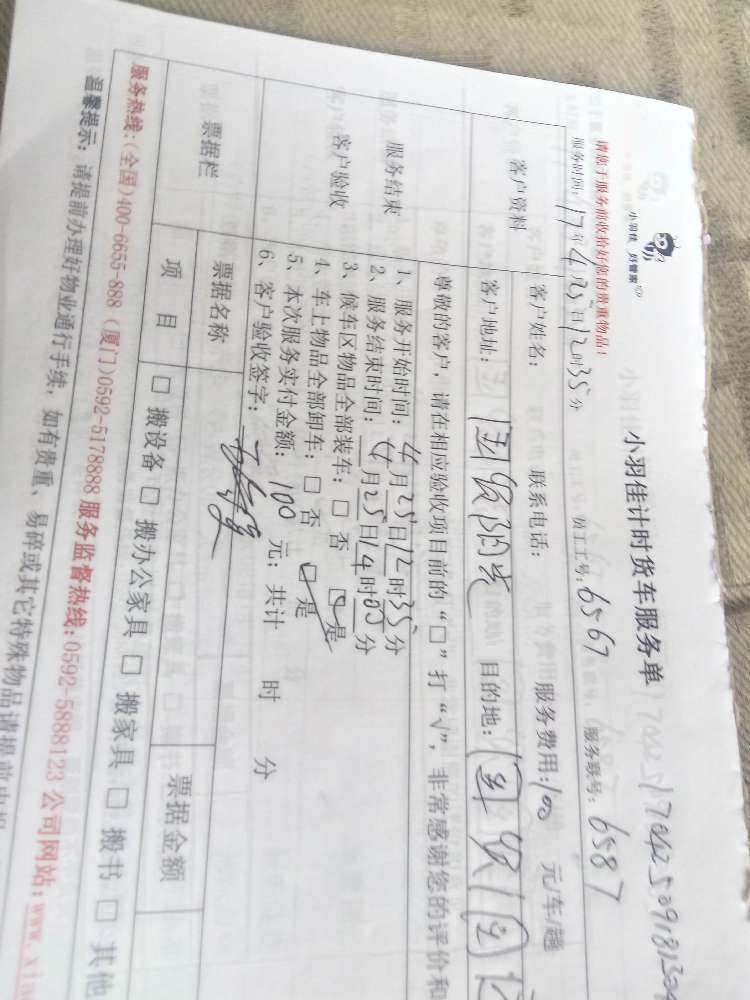 小羽佳 好管家
小羽佳计时货车服务单
请您于服务前收拾好您的贵重物品!
服务时间: 17年4月25日12时35分 员工工号: 6567 服务联号: 6587
客户资料 客户姓名: 联系电话: 服务费用: 100 元/车/趟
客户地址: 国贸阳光 目的地: 国贸
尊敬的客户,请在相应验收项目前的“□”打“√”,非常感谢您的评价和
服务结束
客户验收
1、服务开始时间: 4月25日12时35分
2、服务结束时间: 4月25日14时05分
3、候车区物品全部装车: □ 否 □ 是
4、车上物品全部卸车: □ 否 □ 是
5、本次服务实付金额: 100 元; 共计 时 分
6、客户验收签字:
票据栏 票据名称 票据金额
项目 □ 搬设备 □ 搬办公家具 □ 搬家具 □ 搬书 □ 其他
服务热线:(全国)400-6655-888 (厦门)0592-5178888 服务监督热线:0592-5888123 公司网站:www.xia
温馨提示: 请提前办理好物业通行手续, 如有贵重、易碎或其它特殊物品请提前申报